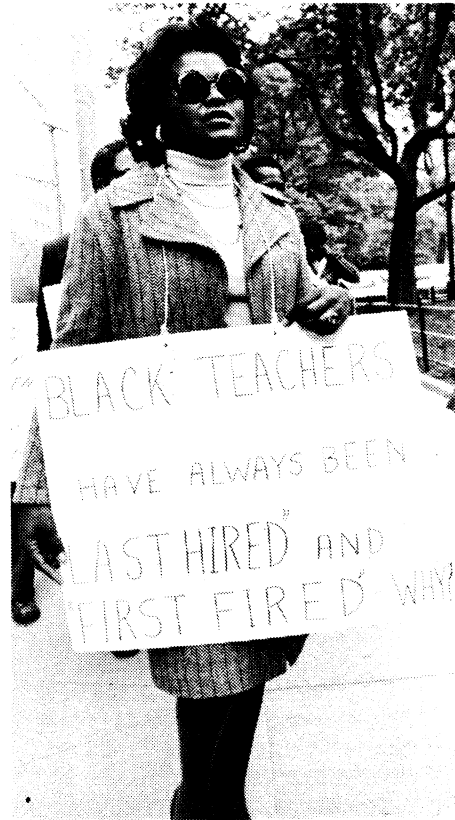 BLACK TEACHERS
HAVE ALWAYS BEEN
"LAST HIRED" AND
"FIRST FIRED" WHY?